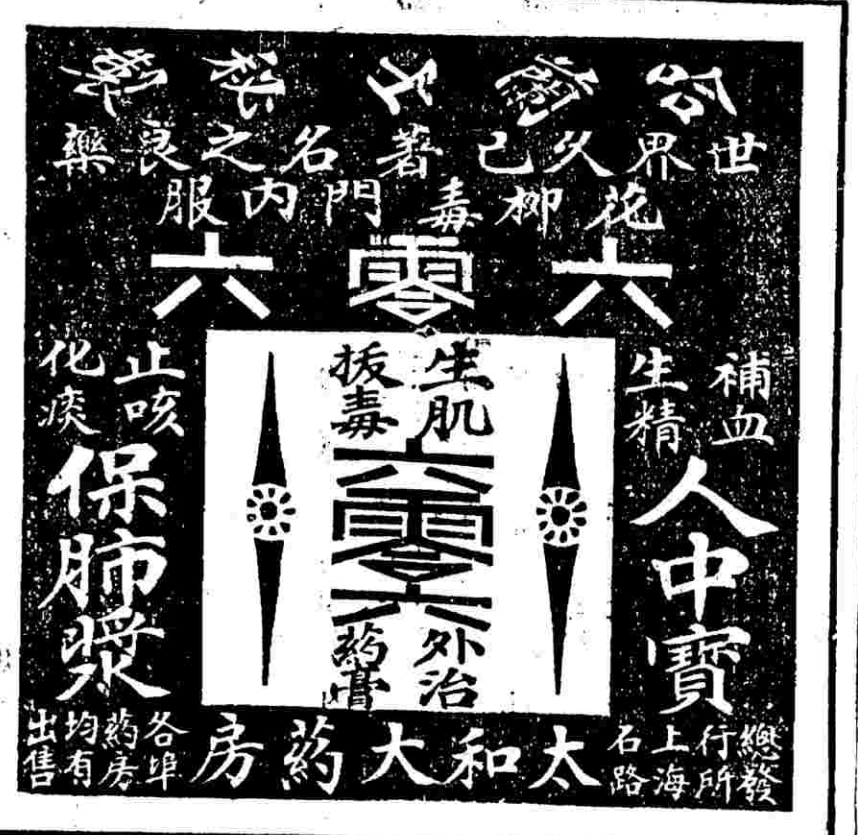 哈 秘製
世界久已著名之良藥
花柳毒門內服
六零六
補血
生精
人中寶
生肌
拔毒
六零六
外治
葯膏
止咳
化痰
保肺漿
總發
行所
上海
石路
太和大葯房
各埠
葯房
均有
出售